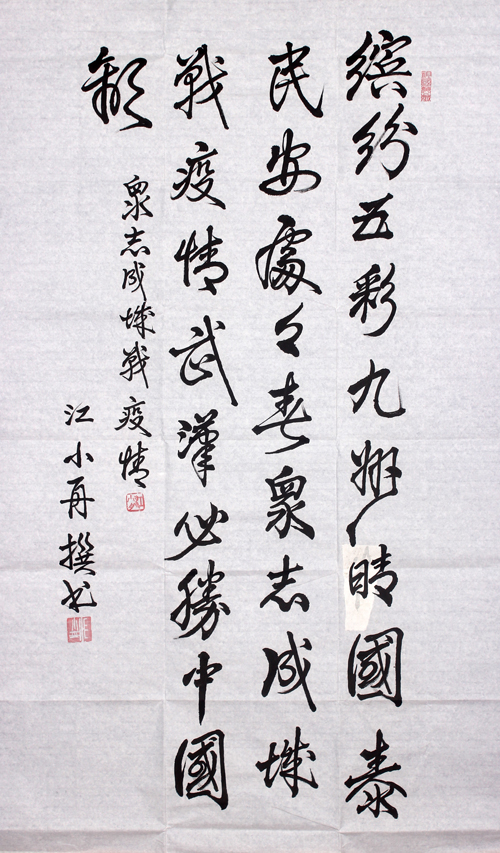 繽紛五彩九州晴國泰
民安處々春衆志成城
戰疫情武漢必勝中國
歡
衆志成城戰疫情
江小再撰书